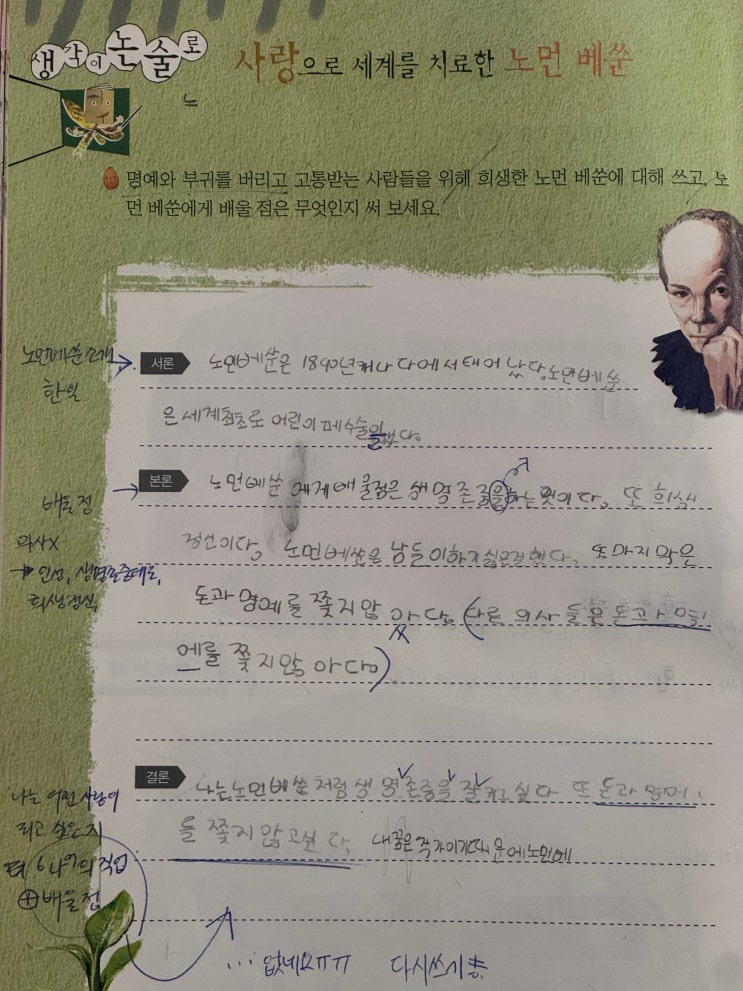 생각이 논술로
사랑으로 세계를 치료한 노먼 베쑨
명예와 부귀를 버리고 고통받는 사람들을 위해 희생한 노먼 베쑨에 대해 쓰고, 노
먼 베쑨에게 배울 점은 무엇인지 써 보세요.
노먼베쑨 소개
한일
서론 노먼베쑨은 1890년 캐나다에서 태어났당 노먼베쑨
은 세계최초로 어린이 폐수술을했다.
배울점
의사X
→ 인성, 생명존중태도,
희생정신
본론 노먼베쑨에게 배울점은 생명존중을하는것이다. 또 희생
정신이당. 노먼베쑨은 남들이하지싫은걸했다. 또마지막은
돈과 명예를 쫓지 않아다. (다른 의사들은 돈과
에를 쫓지않아다.)
나는 어떤 사람이
되고 싶은지
나의 직업
⊕배울점
결론 나는노먼베쑨처럼 생명존중을 잘 싶다 또 돈과
를 쫓지 않고싶다. 내꿈은 작가이기때문에노먼에
... 없네요ㅠㅠ 다시쓰기